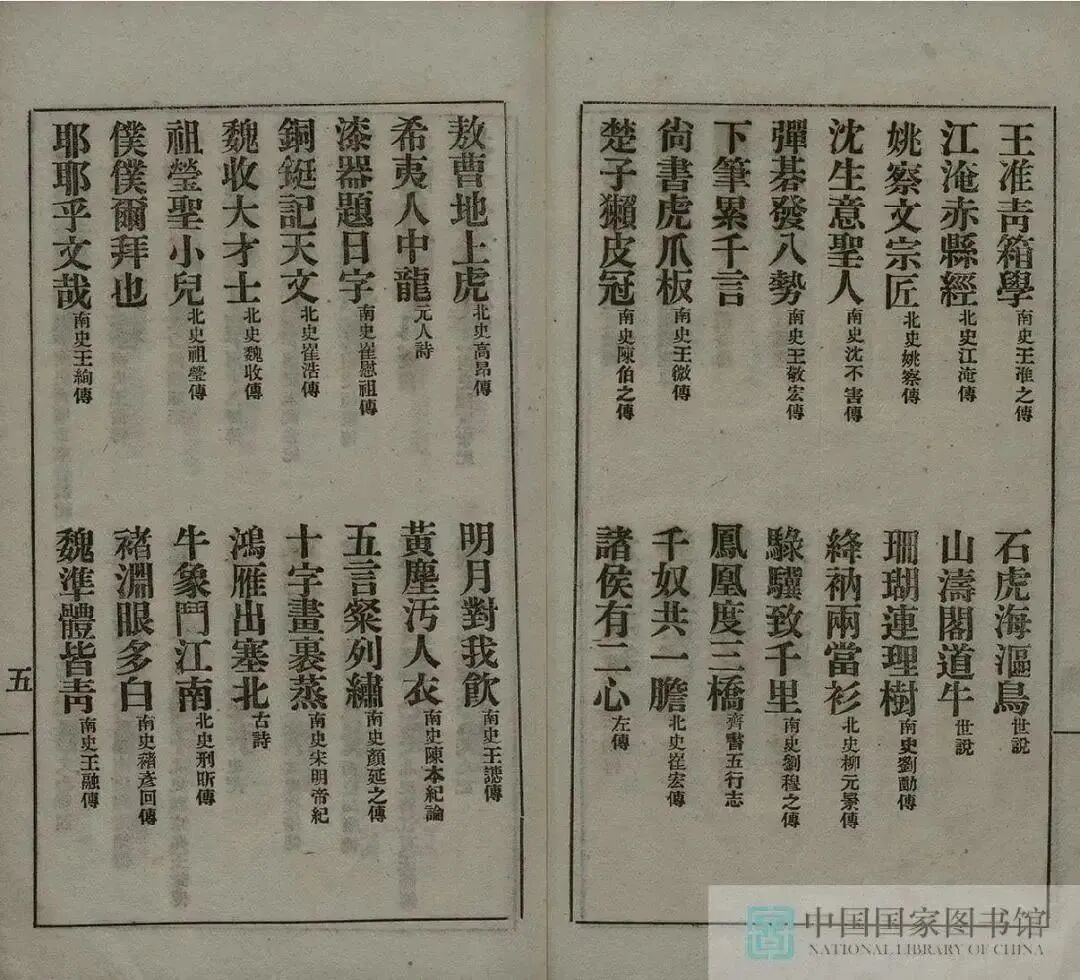 王准靑箱學 南史王准之傳
石虎海漚鳥 世說
江淹赤縣經 北史江淹傳
山濤閣道牛 世說
姚察文宗匠 北史姚察傳
珊瑚連理樹 南史劉勔傳
沈生意聖人 南史沈不害傳
絳衲兩當衫 北史柳元景傳
彈碁發八勢 南史王敬宏傳
騄驥致千里 南史劉穆之傳
下筆累千言
鳳凰度三橋 齊書五行志
尙書虎爪板 南史王微傳
千奴共一膽 北史崔宏傳
楚子獺皮冠 南史陳伯之傳
諸侯有二心 左傳
敖曹地上虎 北史高昂傳
明月對我飮 南史王譓傳
希夷人中龍 元人詩
黃塵汚人衣 南史陳本紀論
漆器題日字 南史崔慰祖傳
五言粲列繡 南史顏延之傳
銅鋌記天文 北史崔浩傳
十字畫裹蒸 南史宋明帝紀
魏收大才士 北史魏收傳
鴻雁出塞北 古詩
祖瑩聖小兒 北史祖瑩傳
牛象鬥江南 北史刑昕傳
僕僕爾拜也
褚淵眼多白 南史褚彥回傳
耶耶乎文哉 南史王絢傳
魏準體皆靑 南史王融傳
五
中国国家图书馆
NATIONAL LIBRARY OF CHINA